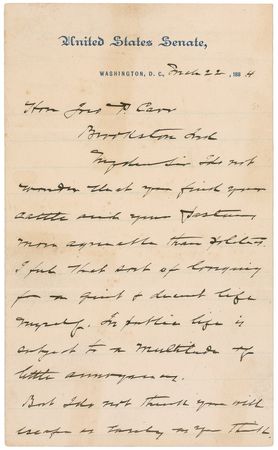 United States Senate,
WASHINGTON, D.C., Mch 22, 1884
Hon Jas P. Carr
Brookston Ind
My dear Sir I do not
wonder that you find your
cattle and your pastures
more agreeable than politics
I feel that sort of longing
for a quiet & decent life
myself. In public life is
subject to a multitude of
little annoyances.
But I do not think you will
escape as surely as you think